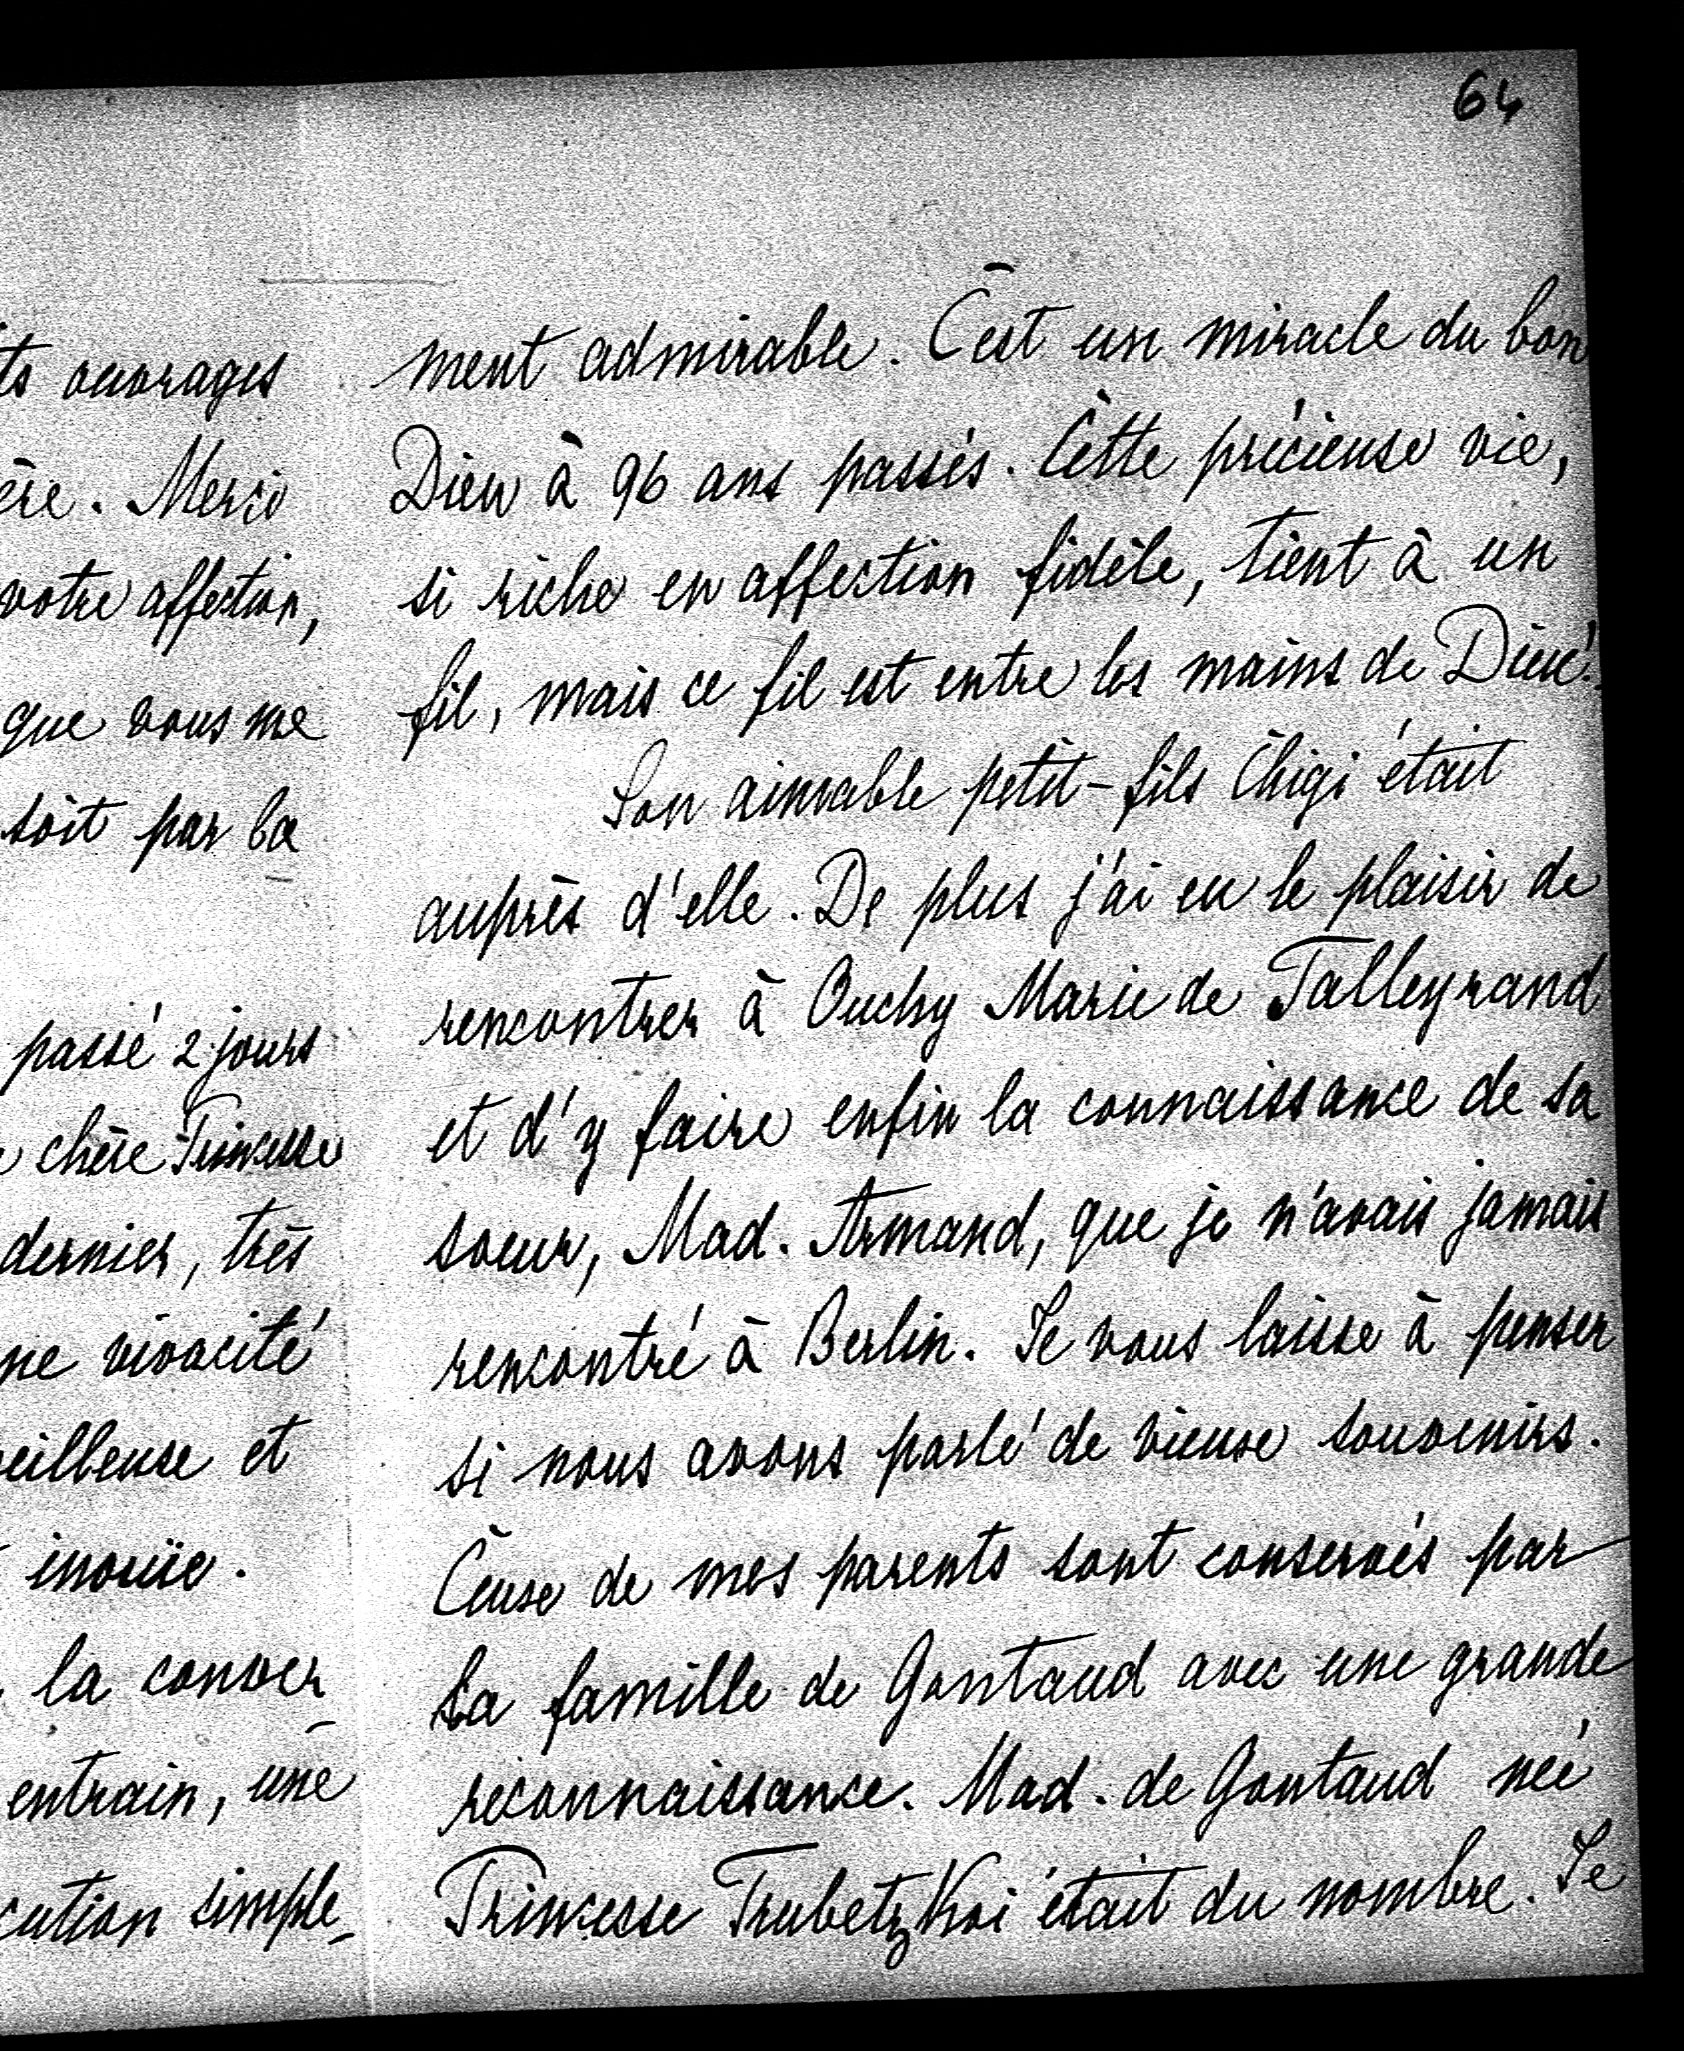 64
ts ouvrages
ère. Merci
votre affection,
que vous me
soit par la
passé 2 jours
chère Princesse
dernier, très
ne vivacité
veilleuse et
inouïe.
la conver
entrain, une
cution simple-
ment admirable. C'est un miracle du bon
Dieu à 96 ans passés. Cette précieuse vie,
si riche en affection fidèle, tient à un
fil, mais ce fil est entre les mains de Dieu!
Son aimable petit-fils Chigi était
auprès d'elle. De plus j'ai eu le plaisir de
rencontrer à Ouchy Marie de Talleyrand
et d'y faire enfin la connaissance de sa
soeur, Mad. Armand, que je n'avais jamais
rencontré à Berlin. Je vous laisse à penser
si nous avons parlé de vieux souvenirs.
Ceux de mes parents sont conservés par
la famille de Gontaud avec une grande
reconnaissance. Mad. de Gontaud née
Princesse Trubetzkoi était du nombre. Je